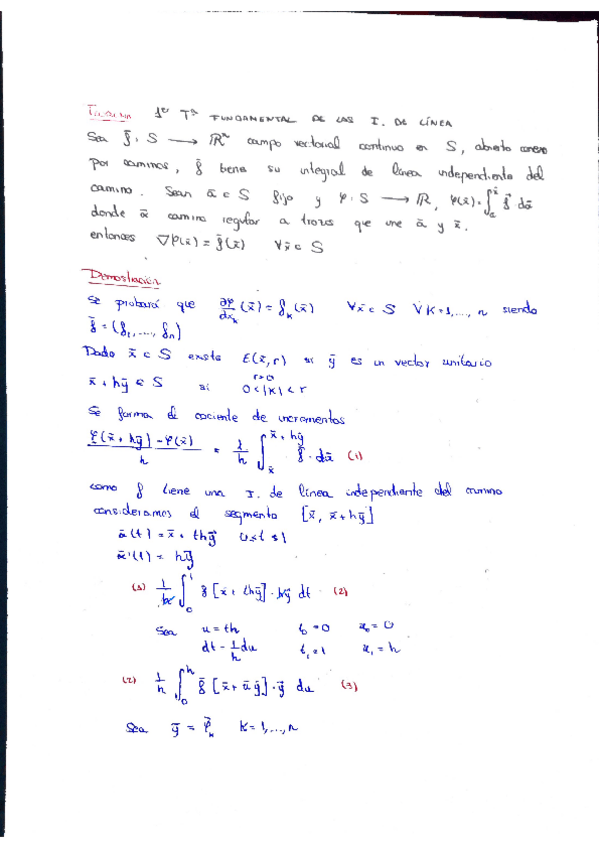 Teorema 1er Tª FUNDAMENTAL DE LAS I. DE LÍNEA
Sea f̄: S → ℝⁿ campo vectorial continuo en S, abierto conexo
por caminos, f̄ tiene su integral de línea independiente del
camino. Sean ā ∈ S fijo y φ: S → ℝ, φ(x̄) = ∫_a^x̄ f̄ dᾱ
donde ᾱ camino regular a trozos que une ā y x̄.
entonces ∇φ(x̄) = f̄(x̄) ∀x̄ ∈ S
Demostración
Se probará que ∂φ/dx_k (x̄) = f_k(x̄) ∀x̄ ∈ S ∀K=1,..., n siendo
f̄ = (f₁,..., fn)
Dado x̄ ∈ S existe E(x̄,r) si ȳ es un vector unitario
r>0
x̄ + hȳ ∈ S si 0<|h|<r
Se forma el cociente de incrementos
φ(x̄ + hȳ) - φ(x̄) / h = 1/h ∫_x̄^{x̄+hȳ} f̄ · dᾱ (1)
como f tiene una I. de línea independiente del camino
consideramos el segmento [x̄, x̄+hȳ]
ᾱ(t) = x̄ + thȳ 0≤t≤1
ᾱ'(t) = hȳ
(1) 1/h ∫_0^1 f[x̄ + thȳ] · hȳ dt (2)
Sea u = th t₀=0 u₀=0
dt = 1/h du t₁=1 u₁=h
(2) 1/h ∫_0^h f̄[x̄ + ūȳ] · ȳ du (3)
Sea ȳ = ē_k K=1,...,n